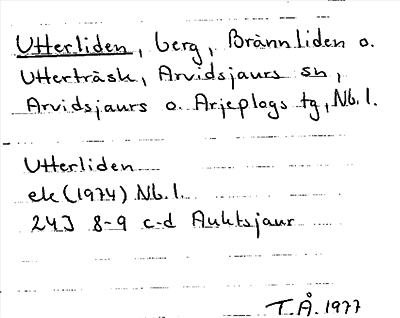 Utterliden, berg, Brännliden o.
Utterträsk, Arvidsjaurs sn,
Arvidsjaurs o. Arjeplogs tg, Nb. l.
Utterliden
ek (1974) Nb. l.
24J 8-9 c-d Auktsjaur
T.Å. 1977